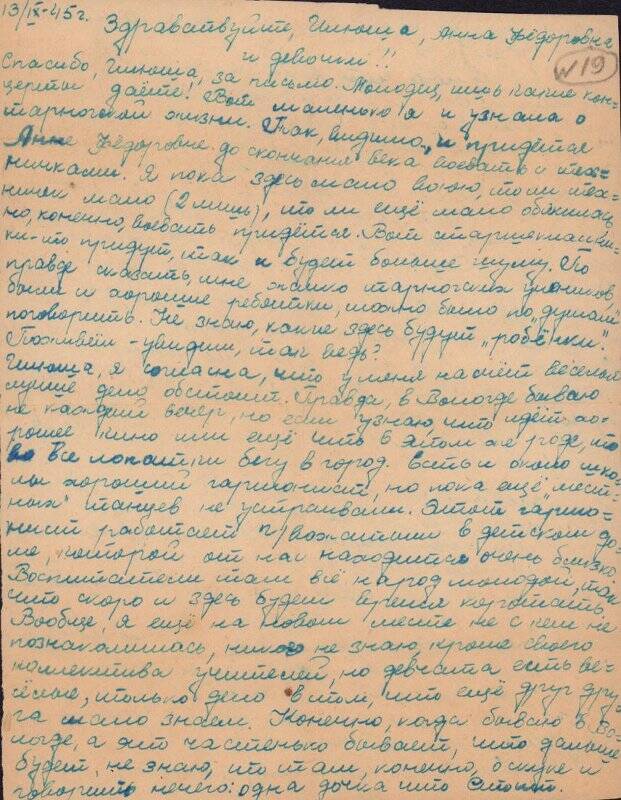 13/IX-45г.
Здравствуйте, Илюша, Анна Фёдоровна
и девочки!!
N19
Спасибо, Илюша, за письмо. Молодец, ишь какие кон-
церты даёте! Вот маленько я и узнала о
тарногской жизни. Так, видимо, и придётся
Анне Фёдоровне до скончания века воевать с тех-
ничками. Я пока здесь мало воюю, то ли тех-
ничек мало (2 лишь), то ли ещё мало обжилась,
но, конечно, воевать придётся. Вот старшеклассни-
ки-то придут, так и будет больше шуму. По
правде сказать, мне жалко тарногских учеников,
были и хорошие ребятки, можно было по „душам"
поговорить. Не знаю, какие здесь будут „робёнки".
Поживём - увидим, так ведь?
Илюша, я согласна, что у меня насчёт веселья
лучше дело обстоит. Правда, в Вологде бываю
не каждый вечер, но если узнаю, что идёт хо-
рошее кино или ещё что в этом же роде, то
во все лопатки бегу в город. Есть и около шко-
лы хороший гармонист, но пока ещё „мест-
ных" танцев не устраивали. Этот гармо-
нист работает п/вожатым в детском до-
ме, который от нас находится очень близко.
Воспитатели там всё народ молодой, так
что скоро и здесь будем время коротать.
Вообще, я ещё на новом месте не с кем не
познакомилась, никого не знаю, кроме своего
коллектива учителей, но девчата есть ве-
сёлые, только дело в том, что ещё друг дру-
га мало знаем. Конечно, когда бываю в Во-
логде, а это частенько бывает, что дальше
будет, не знаю, то там, конечно, о скуке и
говорить нечего: одна дочка что стоит.